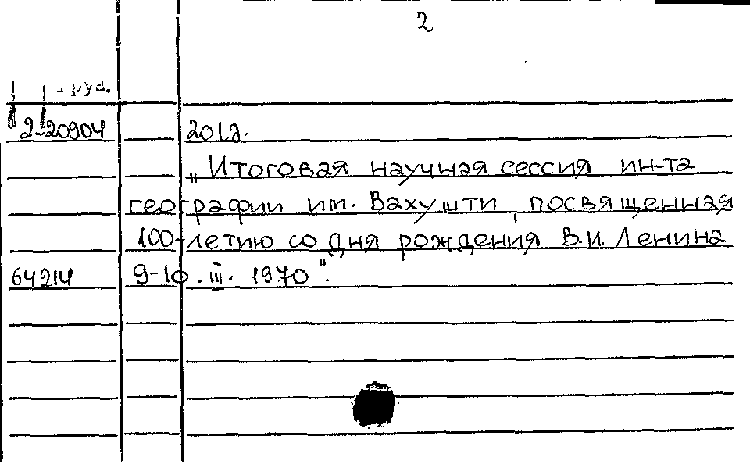 2
2-20904 201 д.
„Итоговая научная сессия ин-та
географии им. Вахушти, посвященная
100-летию со дня рождения В.И. Ленина
64214 9-10.III.1970".